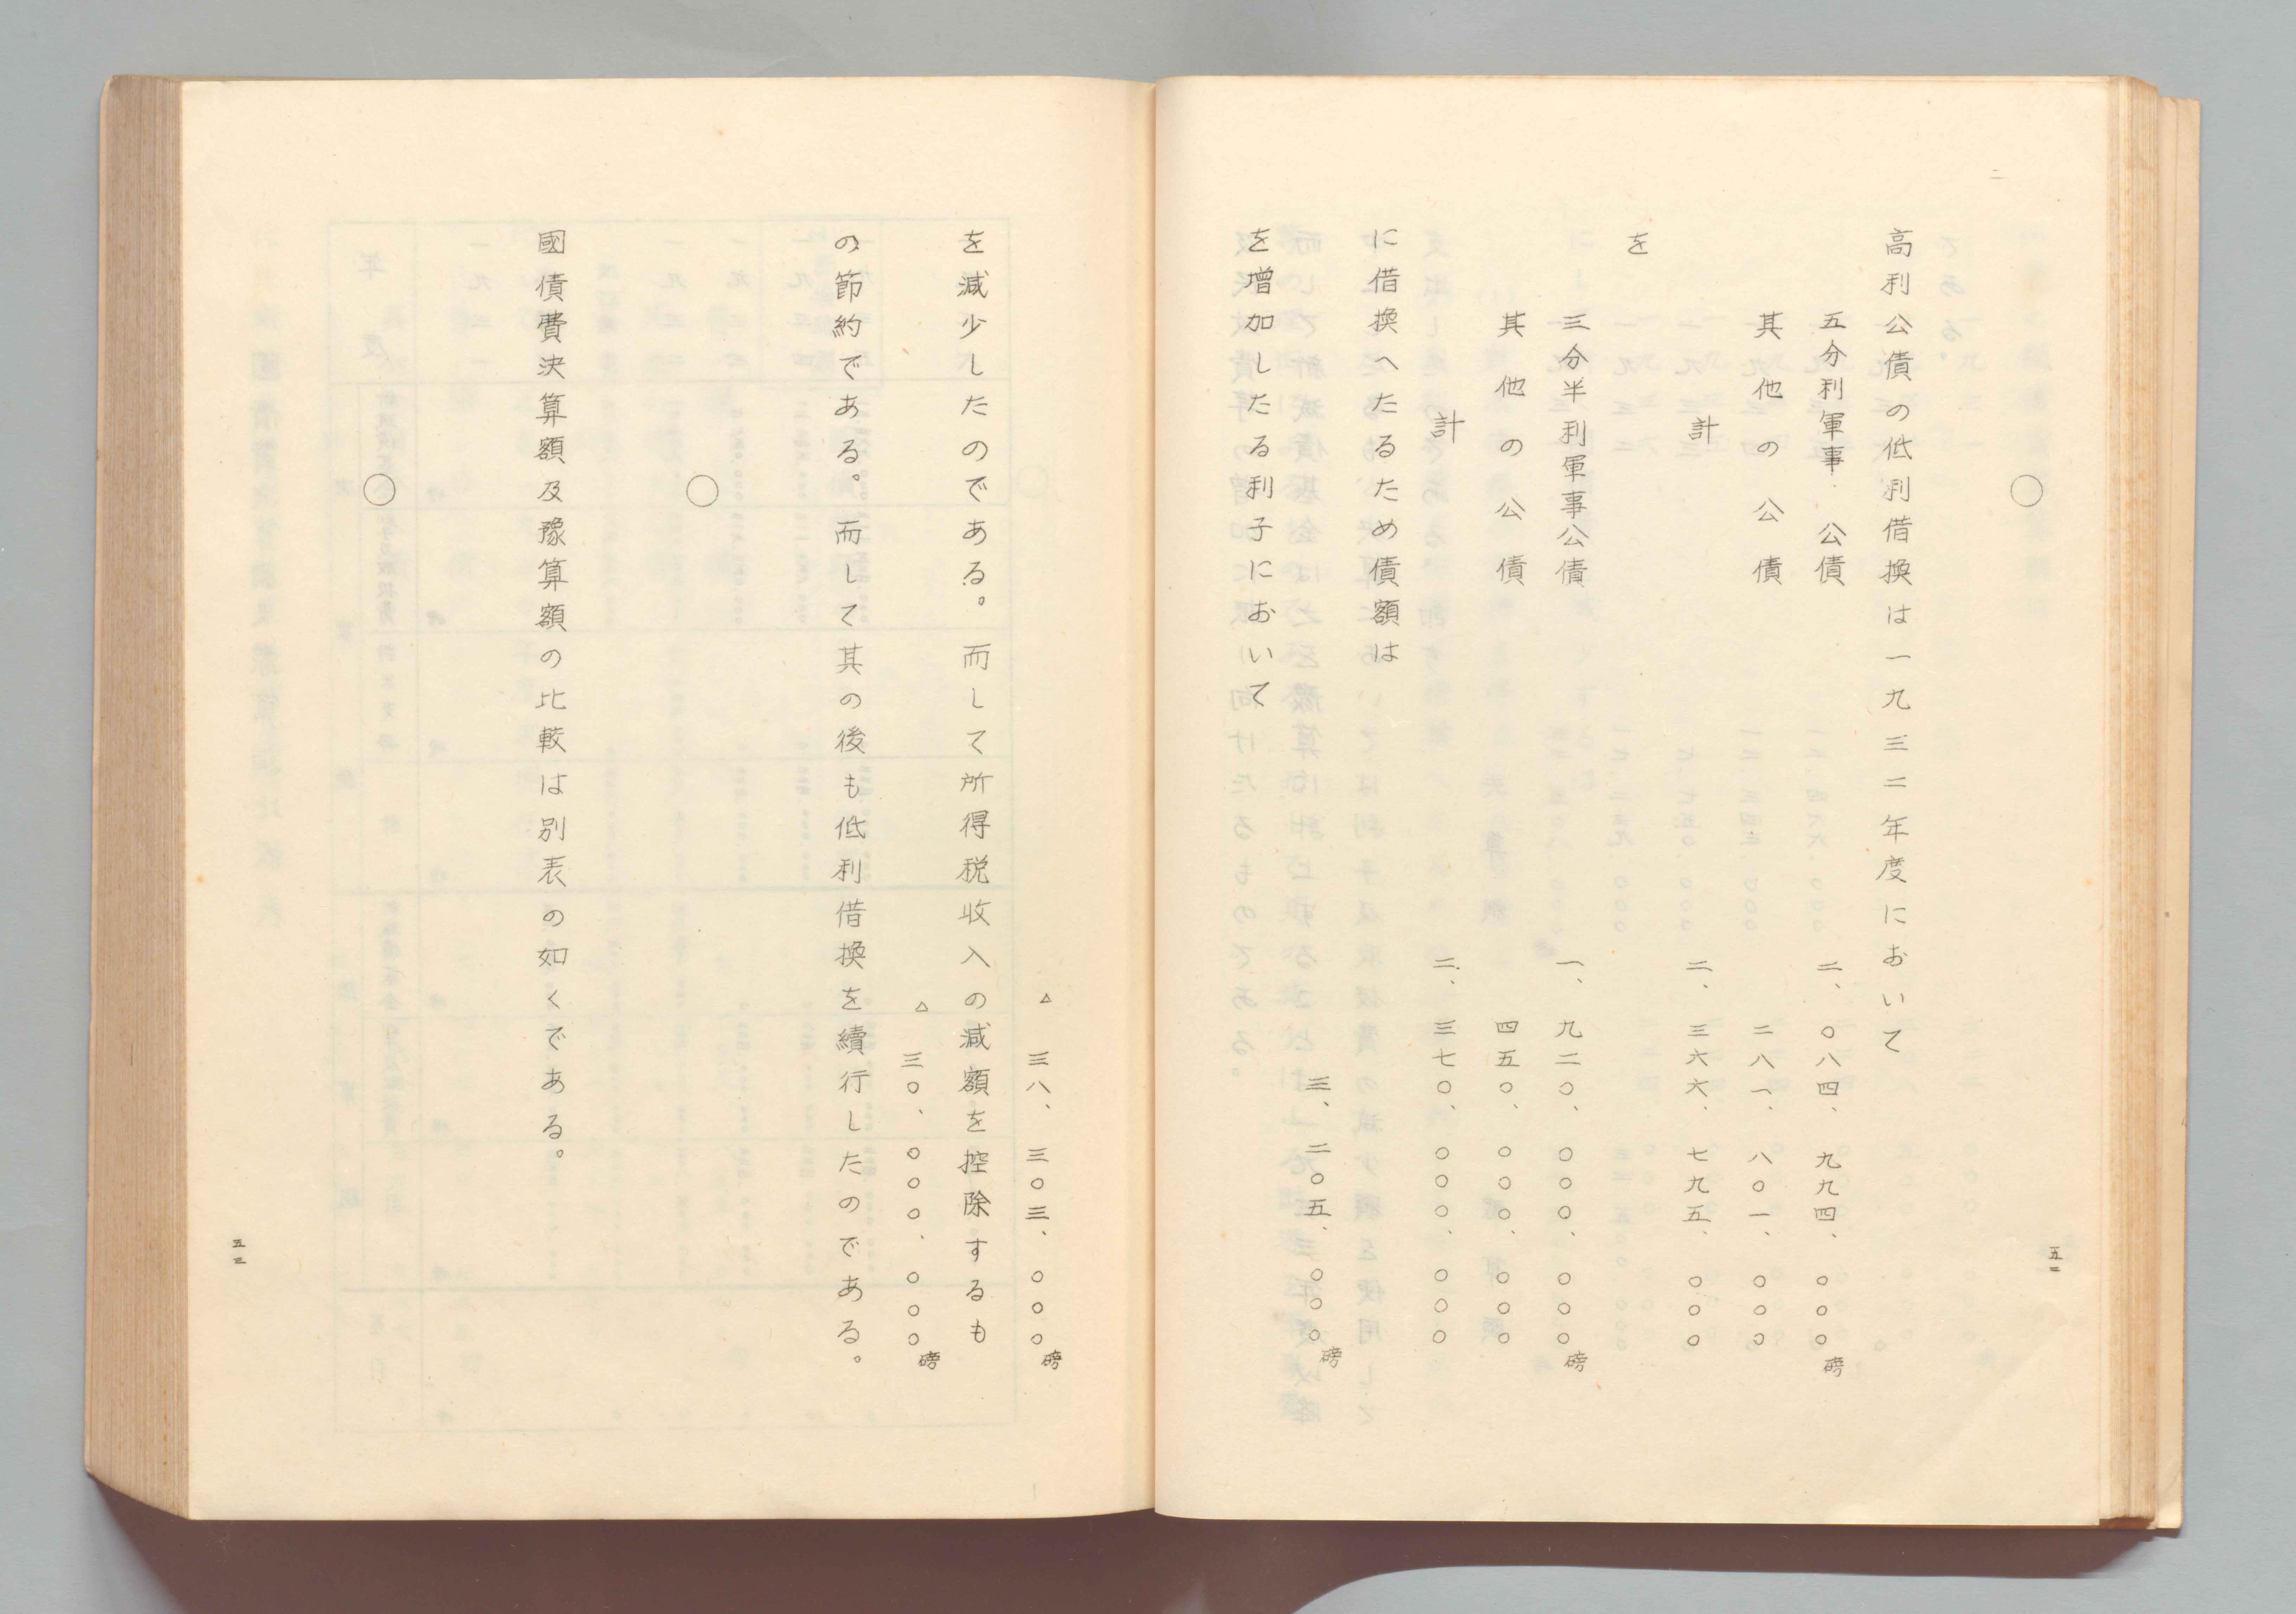 ○
高利公債の低利借換は一九三二年度において
五分利軍事公債 二、〇八四、九九四、〇〇〇磅
其他の公債 二八一、八〇一、〇〇〇
計 二、三六六、七九五、〇〇〇
を
三分半利軍事公債 一、九二〇、〇〇〇、〇〇〇磅
其他の公債 四五〇、〇〇〇、〇〇〇
計 二、三七〇、〇〇〇、〇〇〇
に借換へたるため債額は
三、二〇五、〇〇〇磅
を増加したる利子において
五二
△三八、三〇三、〇〇〇磅
を減少したのである。而して所得税收入の減額を控除するも
△三〇、〇〇〇、〇〇〇磅
の節約である。而して其の後も低利借換を續行したのである。
○
國債費決算額及豫算額の比較は別表の如くである。
○
五三